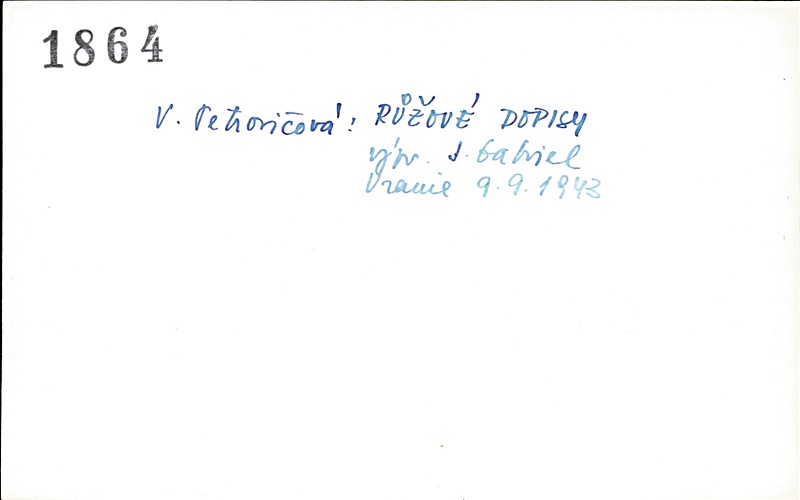 1864
V. Petrovičová: RŮŽOVÉ DOPISY
výpr. J. Gabriel
Uranie 9.9.1943